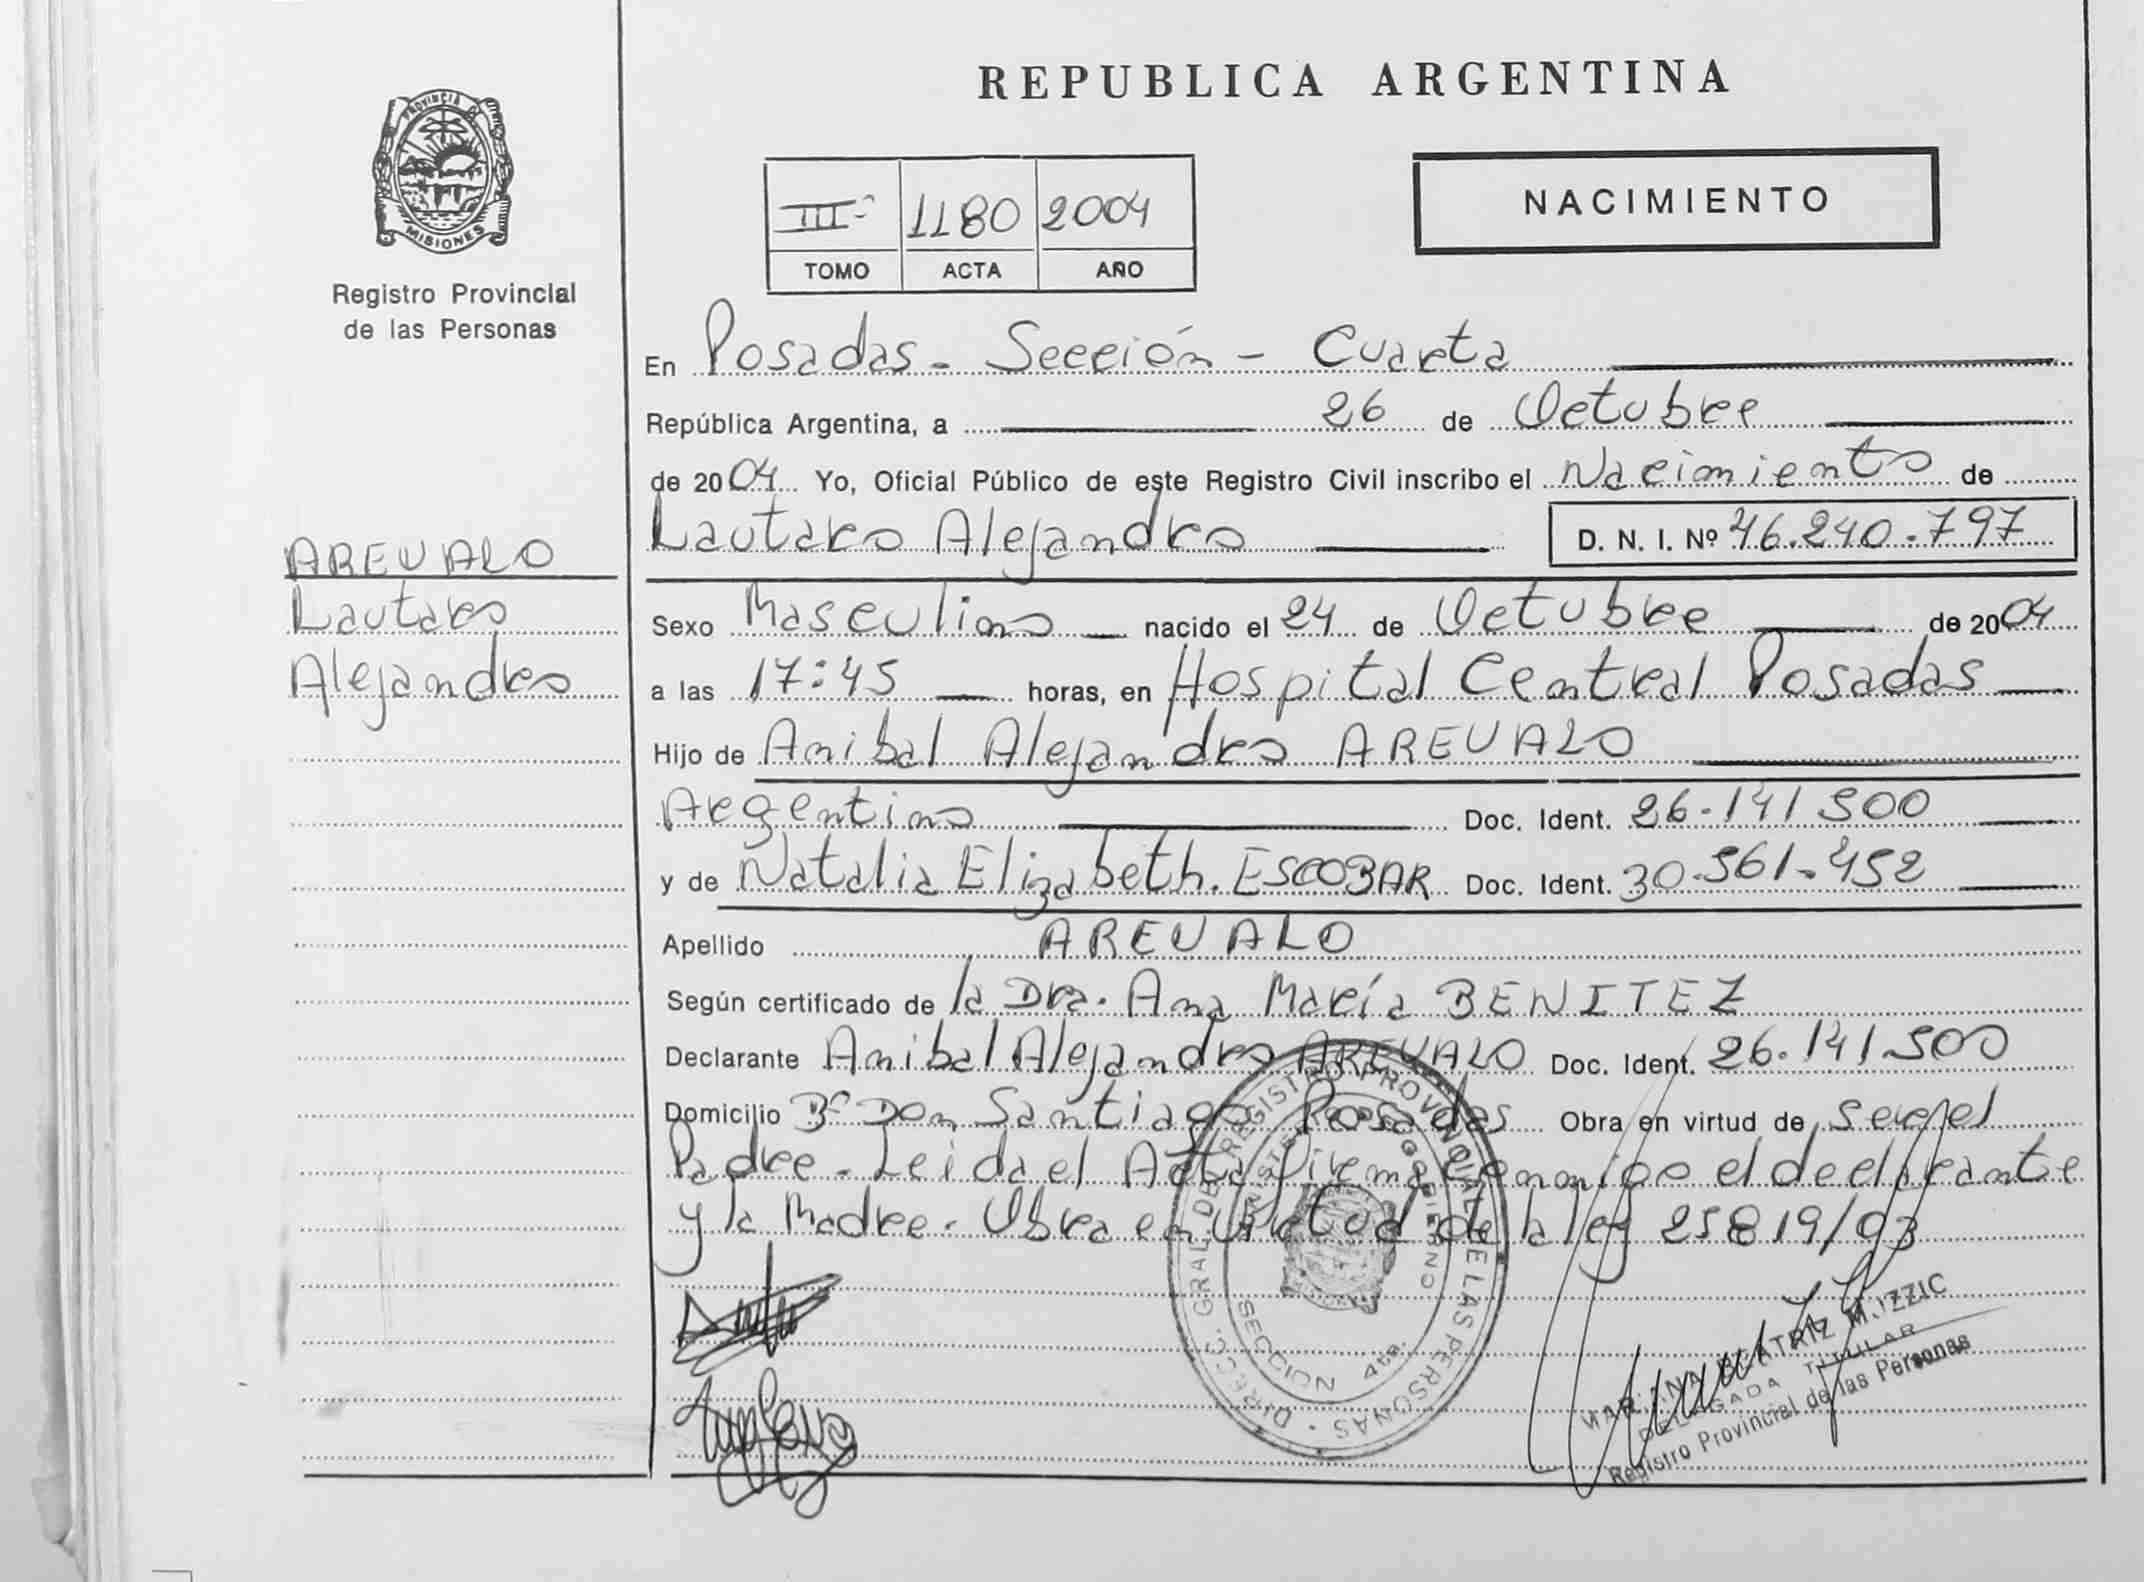 REPUBLICA ARGENTINA
PROVINCIA DE
MISIONES
Registro Provincial
de las Personas
III 1180 2004
TOMO ACTA AÑO
NACIMIENTO
En Posadas - Sección - Cuarta
República Argentina, a 26 de Octubre
de 2004 Yo, Oficial Público de este Registro Civil inscribo el Nacimiento de
Lautaro Alejandro D. N. I. Nº 46.240.797
AREVALO
Lautaro
Alejandro
Sexo Masculino nacido el 24 de Octubre de 2004
a las 17:45 horas, en Hospital Central Posadas
Hijo de Anibal Alejandro AREVALO
Argentino Doc. Ident. 26.141.500
y de Natalia Elizabeth. ESCOBAR Doc. Ident. 30.561.452
Apellido AREVALO
Según certificado de la Dra. Ana María BENITEZ
Declarante Anibal Alejandro AREVALO Doc. Ident. 26.141.500
Domicilio Bº Don Santiago Posadas Obra en virtud de ser el
Padre - Leida el Acta firma conmigo el declarante
y la Madre. Obra en Virtud de la ley 25819/03
DIRECC. GRAL. DE REGISTRO PROVINCIAL DE LAS PERSONAS
MINISTERIO DE GOBIERNO
SECCION 4ta.
BEATRIZ
DELEGADA TITULAR
Registro Provincial de las Personas